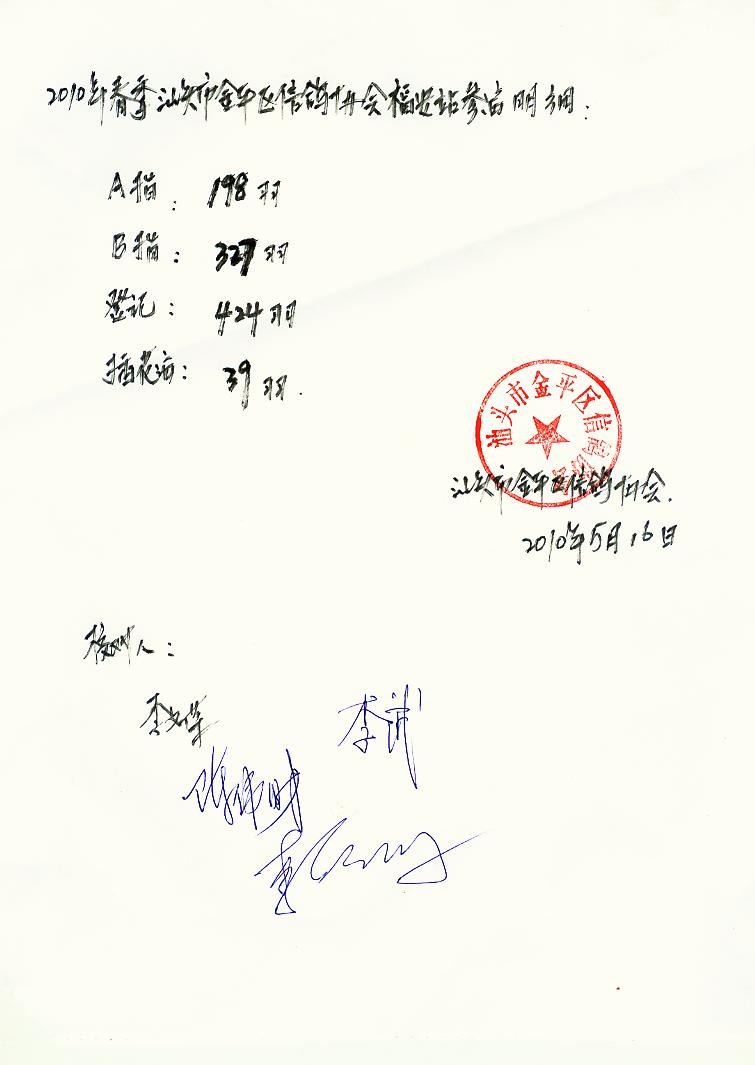 2010年春季汕头市金平区信鸽协会福安站参站明细:
A指: 198羽
B指: 327羽
登记: 424羽
插花站: 39羽.
汕头市金平区信鸽协会
汕头市金平区信鸽协会.
2010年5月16日
核对人:
李
李